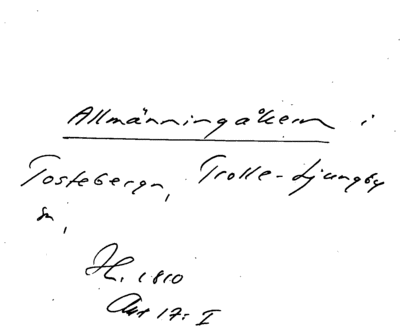 Allmänningåkern i
Tosteberga, Trolle-Ljungby
sn,
H. 1810
Akt 17: I